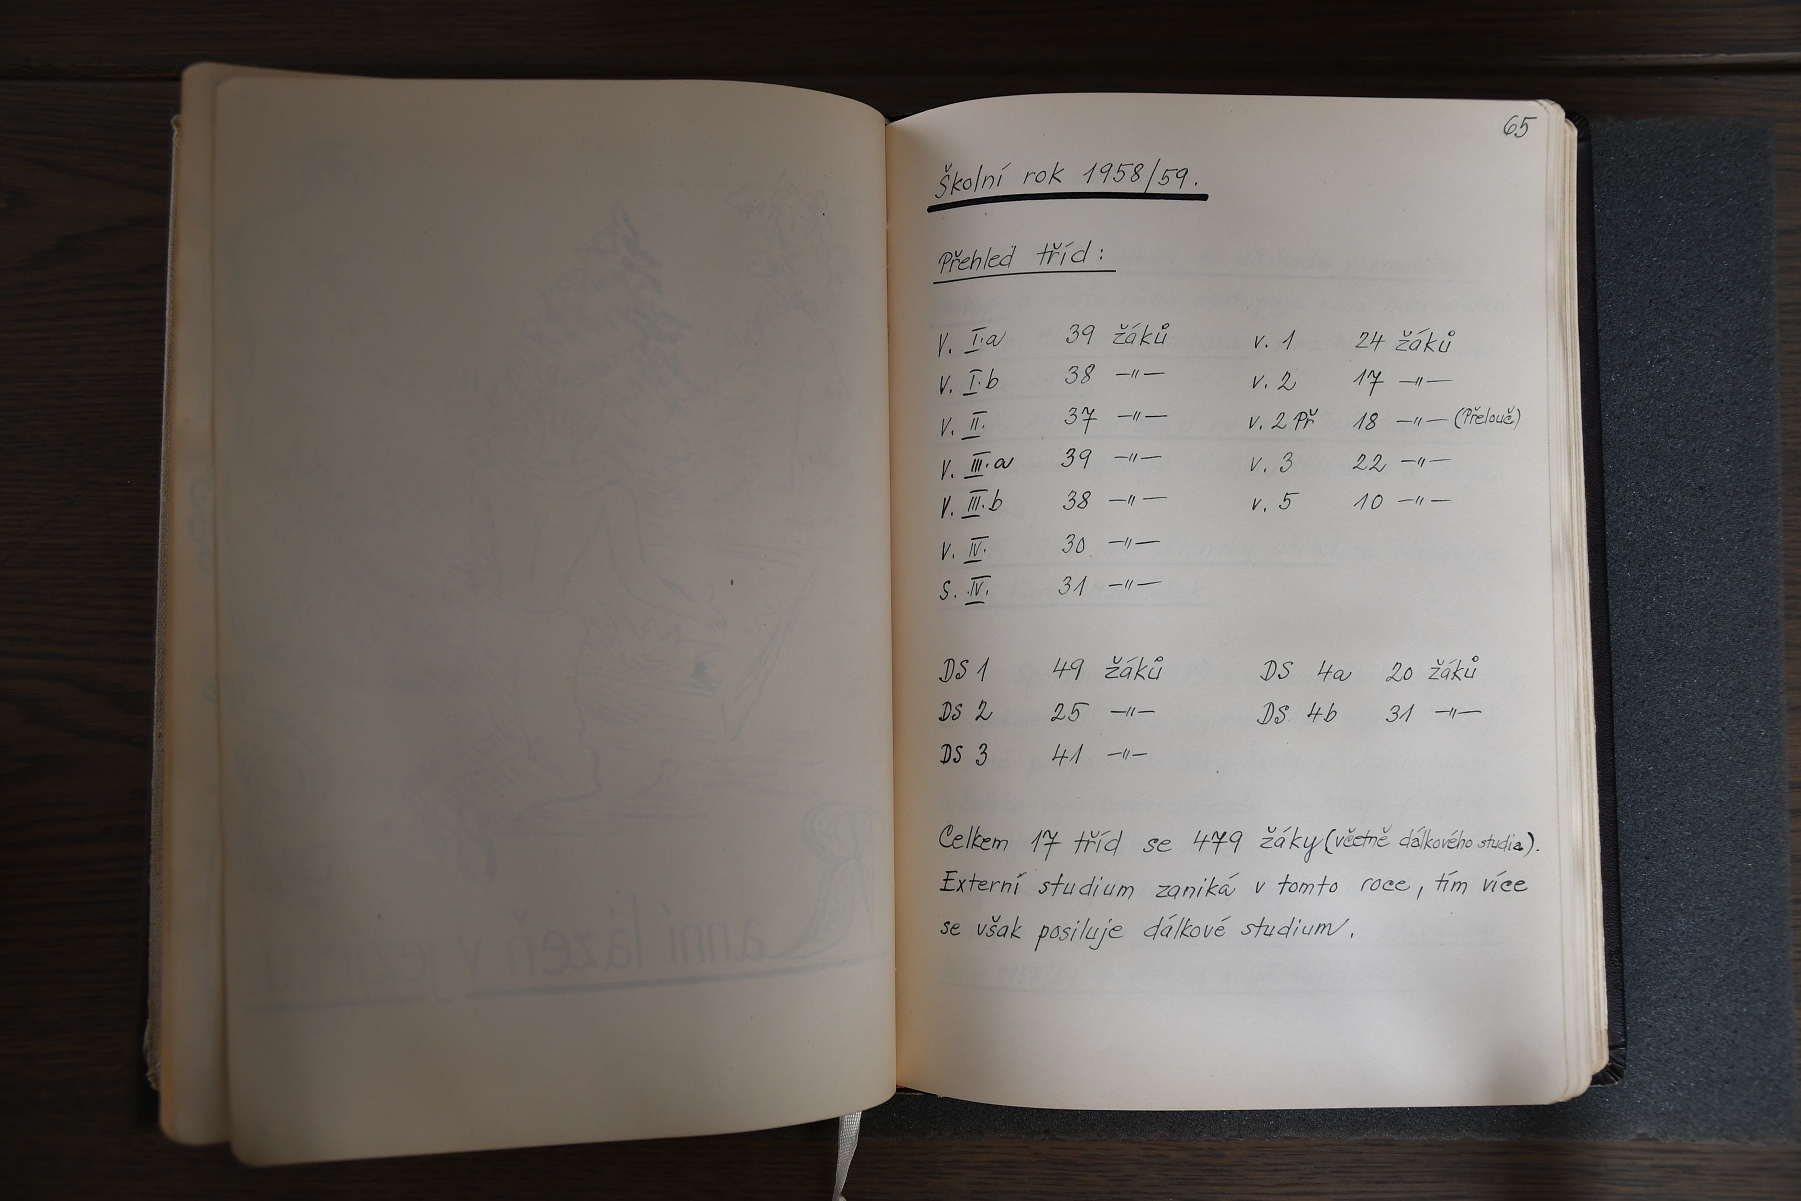 65
Školní rok 1958/59.
Přehled tříd:
V. I.a 39 žáků v. 1 24 žáků
V. I.b 38 —"— v. 2 17 —"—
V. II. 37 —"— v. 2 Př 18 —"— (Přelouč)
V. III.a 39 —"— v. 3 22 —"—
V. III.b 38 —"— v. 5 10 —"—
V. IV. 30 —"—
S. IV. 31 —"—
DS 1 49 žáků DS 4a 20 žáků
DS 2 25 —"— DS 4b 31 —"—
DS 3 41 —"—
Celkem 17 tříd se 479 žáky (včetně dálkového studia).
Externí studium zaniká v tomto roce, tím více
se však posiluje dálkové studium.
Ranní lázeň v jezírku